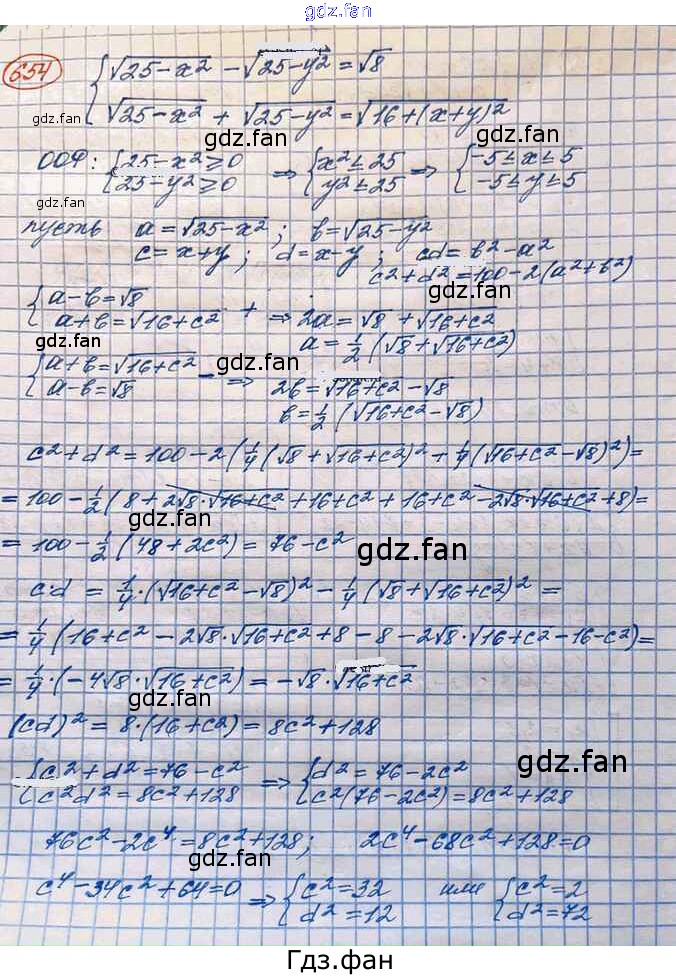 gdz.fan
654
{ √25-x² - √25-y² = √8
{ √25-x² + √25-y² = √16+(x+y)²
gdz.fan
gdz.fan
gdz.fan
ООФ: { 25-x² ≥ 0 ⇒ { x² ≤ 25 ⇒ { -5 ≤ x ≤ 5
{ 25-y² ≥ 0 { y² ≤ 25 { -5 ≤ y ≤ 5
пусть a = √25-x² ; b = √25-y²
gdz.fan
c = x+y ; d = x-y ; cd = b²-a²
c²+d² = 100-2(a²+b²)
gdz.fan
{ a-b = √8
{ a+b = √16+c² + ⇒ 2a = √8 + √16+c²
gdz.fan
a = ½ (√8 + √16+c²)
gdz.fan
{ a+b = √16+c²
{ a-b = √8 - ⇒ 2b = √16+c² - √8
gdz.fan
b = ½ (√16+c² - √8)
c²+d² = 100-2(¼(√8+√16+c²)² + ¼(√16+c²-√8)²) =
= 100-½(8+2√8·√16+c²+16+c²+16+c²-2√8·√16+c²+8) =
gdz.fan
= 100-½(48+2c²) = 76-c²
gdz.fan
c·d = ¼·(√16+c²-√8)² - ¼(√8+√16+c²)² =
= ¼(16+c²-2√8·√16+c²+8-8-2√8·√16+c²-16-c²) =
= ¼·(-4√8·√16+c²) = -√8·√16+c²
gdz.fan
(cd)² = 8·(16+c²) = 8c²+128
gdz.fan
{ c²+d² = 76-c² ⇒ { d² = 76-2c²
{ c²d² = 8c²+128 { c²(76-2c²) = 8c²+128
76c²-2c⁴ = 8c²+128; 2c⁴-68c²+128=0
gdz.fan
c⁴-34c²+64=0 ⇒ { c²=32 или { c²=2
{ d²=12 { d²=72
Гдз.фан